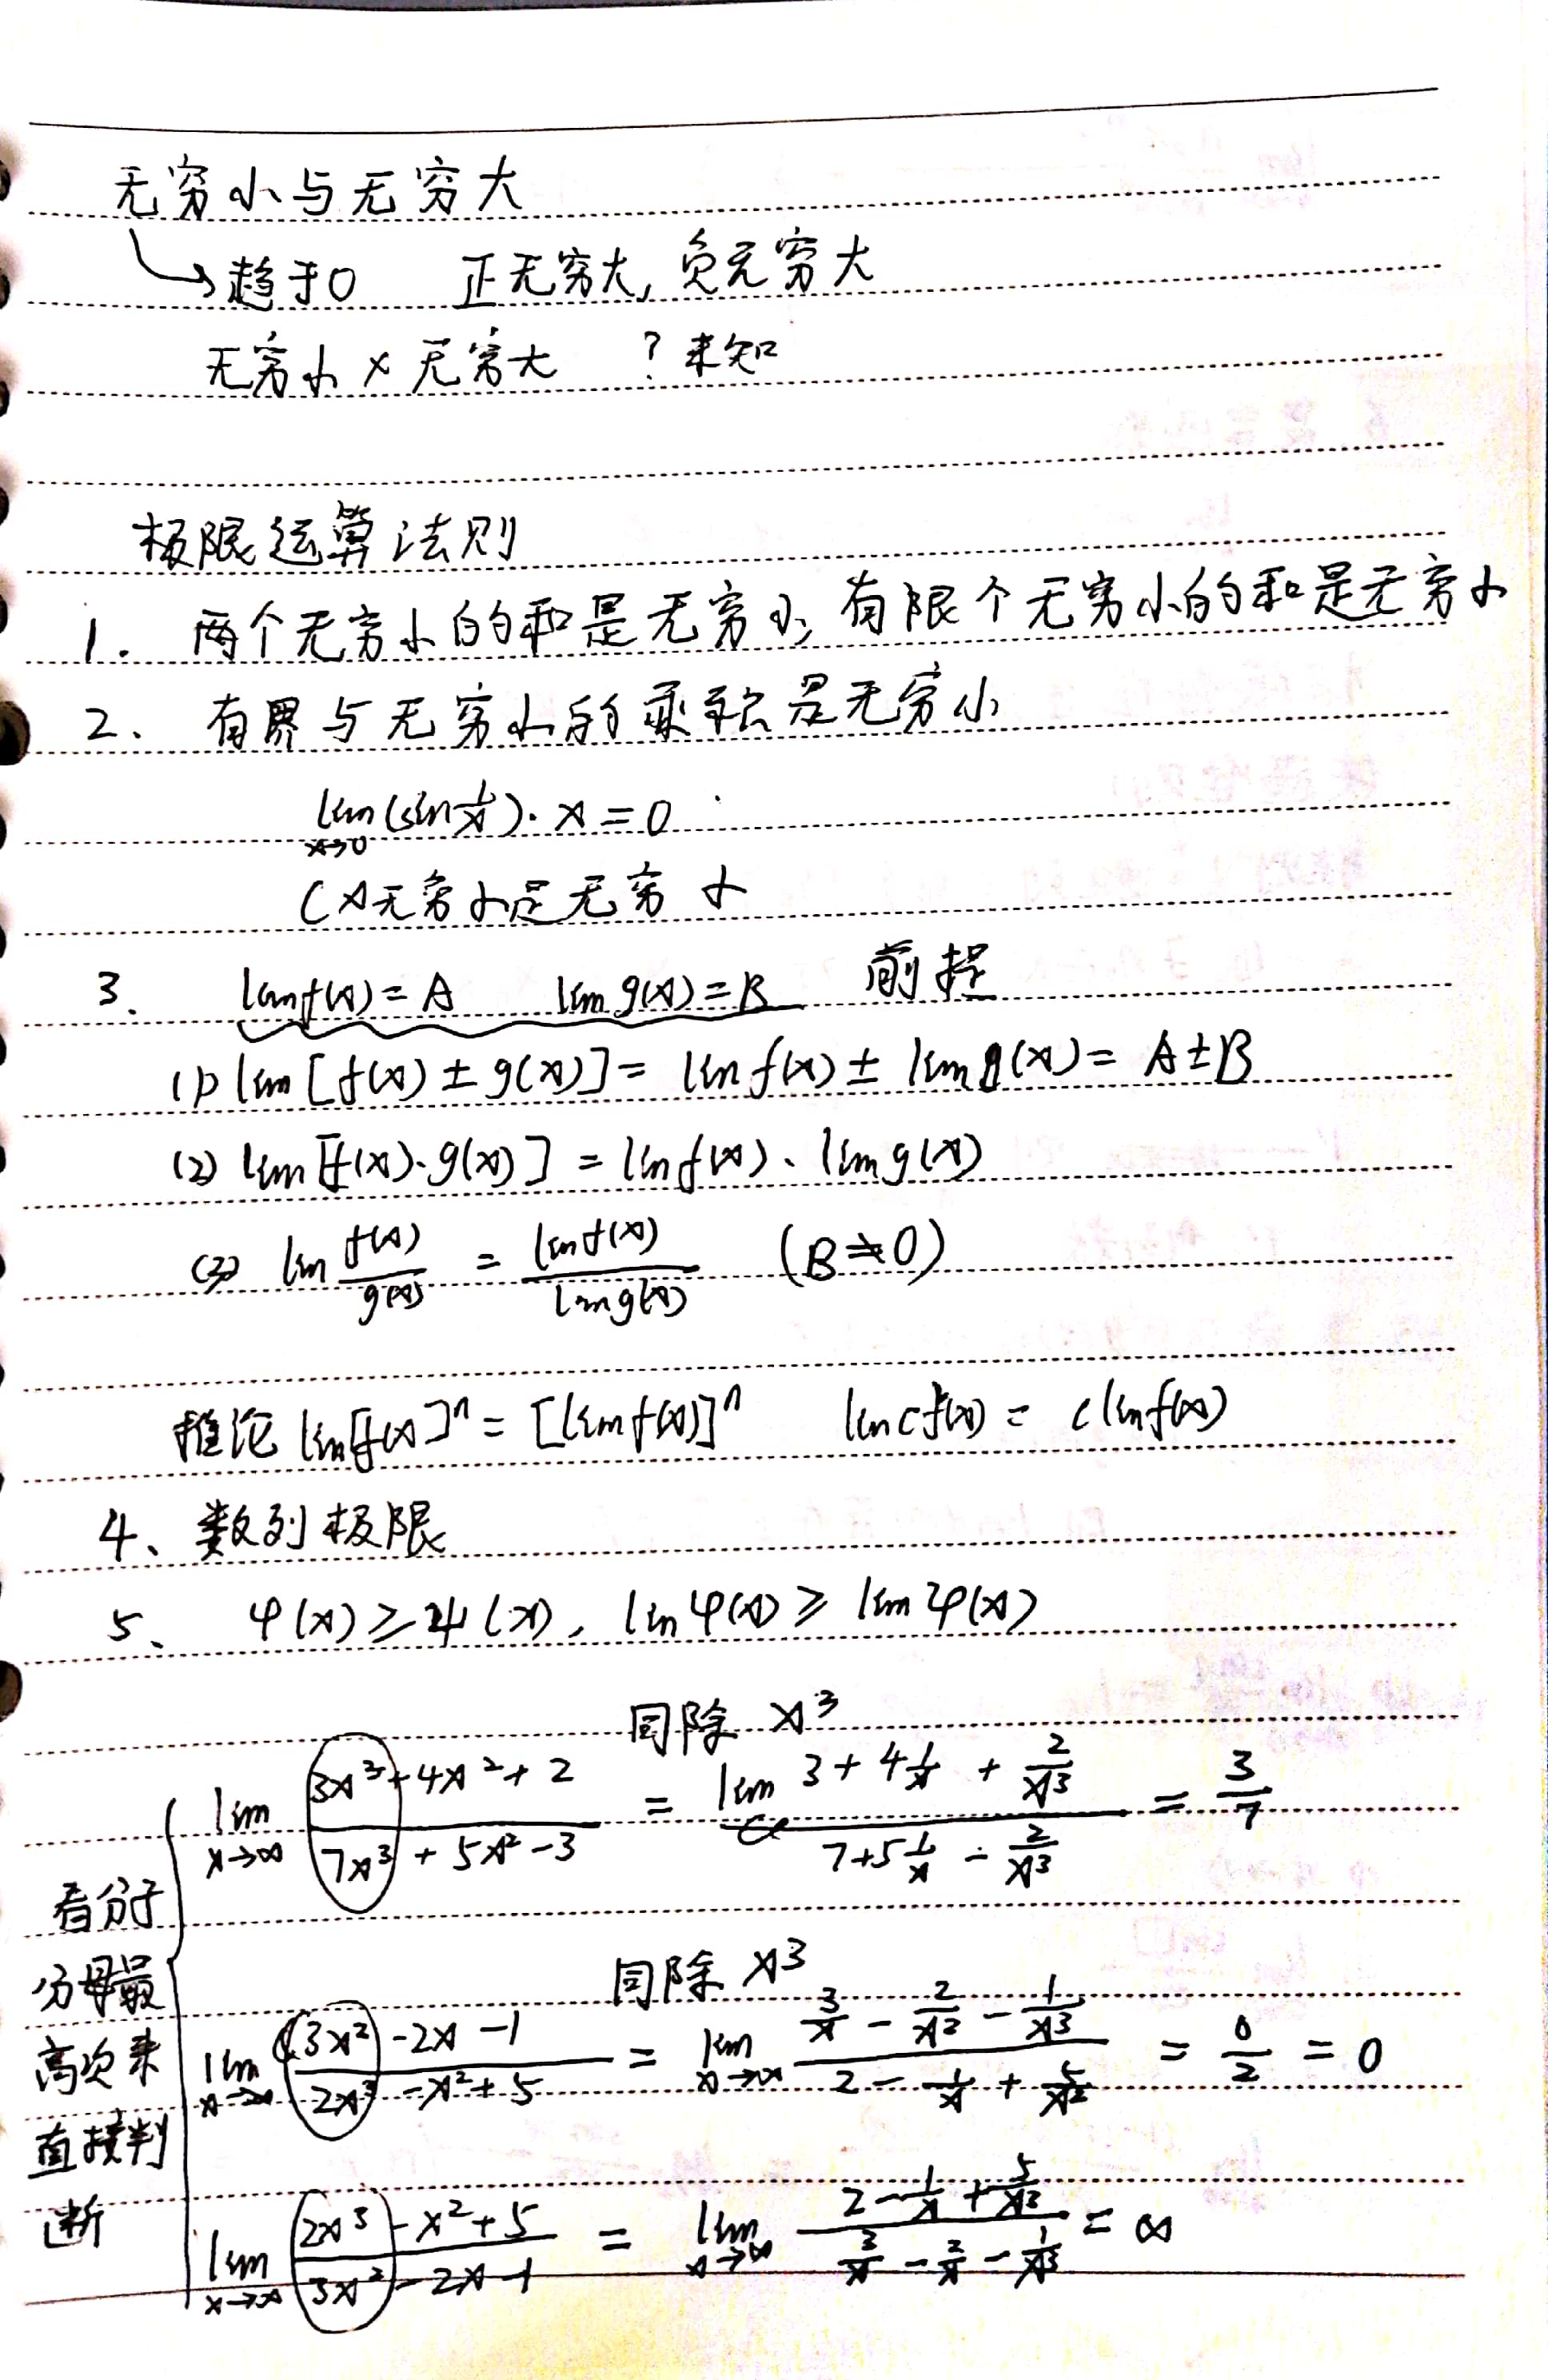 无穷小与无穷大
↳趋于0 正无穷大, 负无穷大
无穷小 × 无穷大 ? 未知
极限运算法则
1. 两个无穷小的和是无穷小, 有限个无穷小的和是无穷小
2、 有界与无穷小的乘积是无穷小
lim(x→0) (sin 1/x)·x = 0
C×无穷小是无穷小
3. lim f(x) = A lim g(x) = B 前提
(1) lim [f(x) ± g(x)] = lim f(x) ± lim g(x) = A ± B
(2) lim [f(x)·g(x)] = lim f(x)·lim g(x)
(3) lim f(x)/g(x) = lim f(x)/lim g(x) (B≠0)
推论 lim[f(x)]ⁿ = [lim f(x)]ⁿ lim cf(x) = c lim f(x)
4、数列极限
5、 φ(x) ≥ ψ(x), lim φ(x) ≥ lim ψ(x)
同除 x³
lim(x→∞) (3x³+4x²+2)/(7x³+5x²-3) = lim (3+4 1/x + 2/x³)/(7+5 1/x - 2/x³) = 3/7
看分子
分母最
高次来
直接判
断
同除 x³
lim(x→∞) (3x²-2x-1)/(2x³-x²+5) = lim(x→∞) (3/x - 2/x² - 1/x³)/(2 - 1/x + 5/x²) = 0/2 = 0
lim(x→∞) (2x³-x²+5)/(3x²-2x-1) = lim(x→∞) (2 - 1/x + 5/x²)/(3/x - 2/x - 1/x³) = ∞